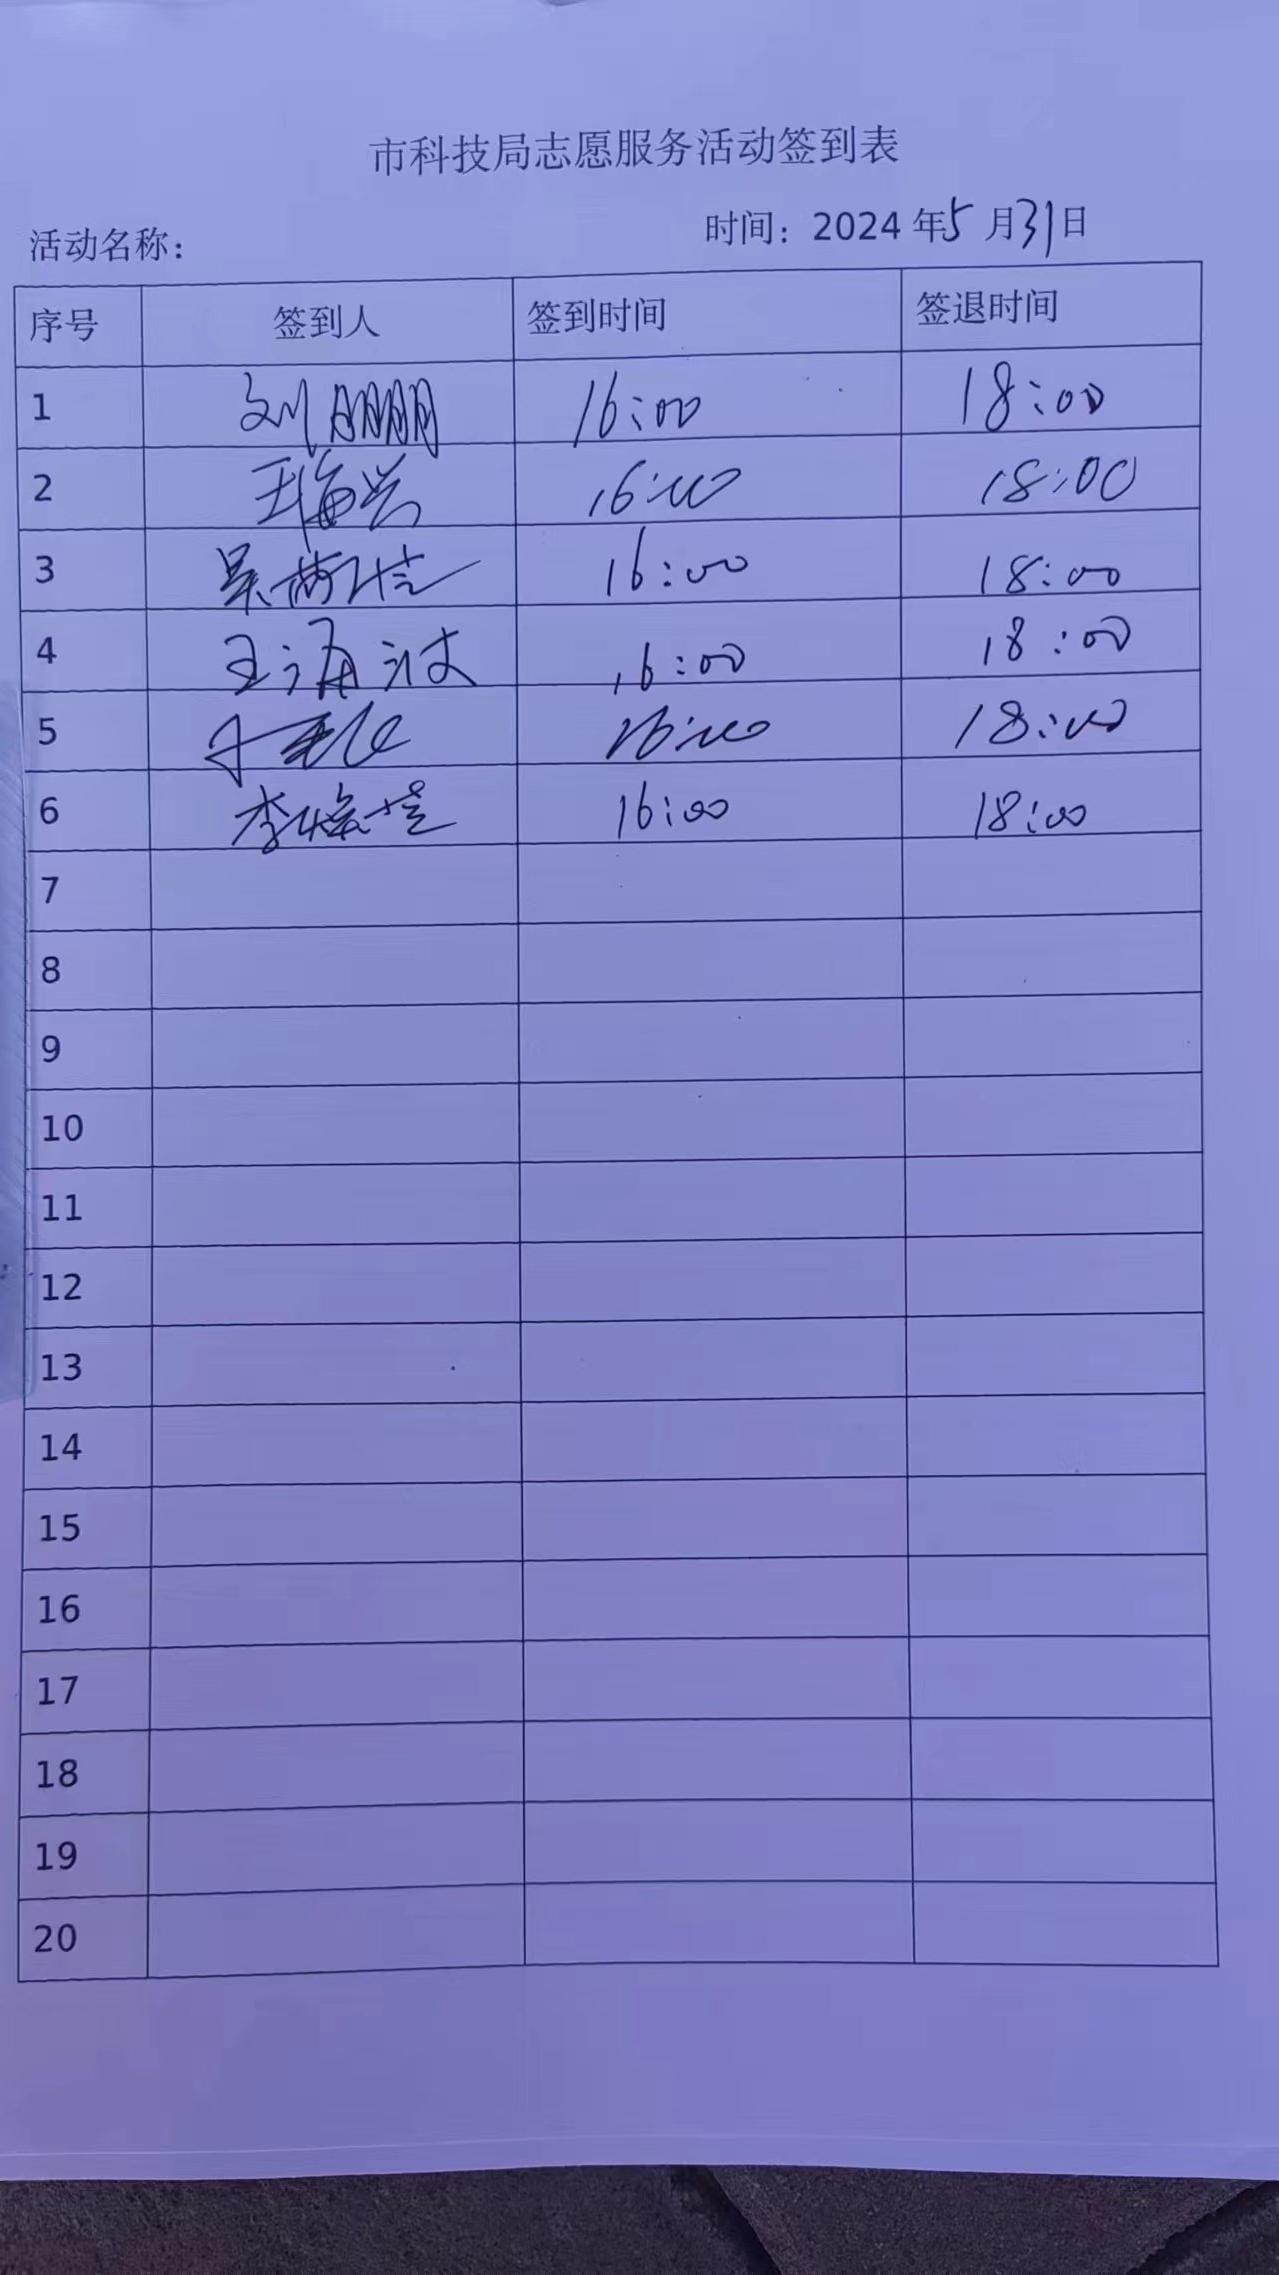 市科技局志愿服务活动签到表
活动名称： 时间：2024 年5 月31日
序号 签到人 签到时间 签退时间
1 刘鹏鹏 16:00 18:00
2 王海兴 16:00 18:00
3 吴 16:00 18:00
4 王海波 16:00 18:00
5 16:00 18:00
6 李 16:00 18:00
7
8
9
10
11
12
13
14
15
16
17
18
19
20